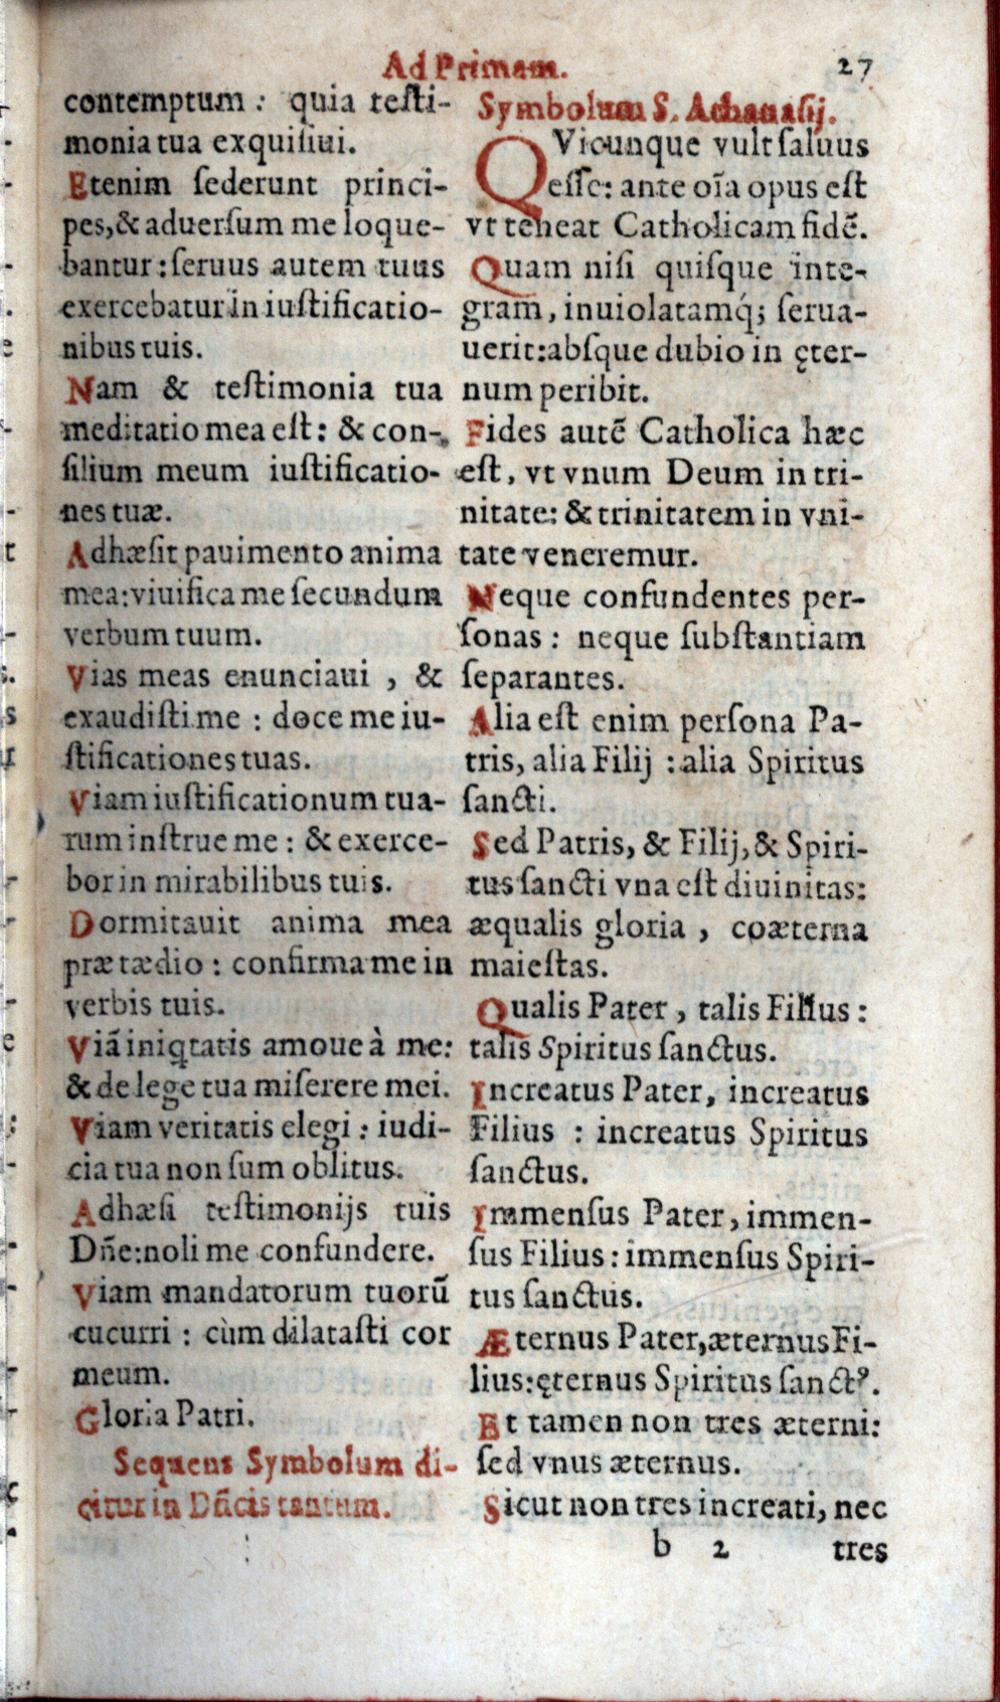 Ad Primam.
27
contemptum : quia teſti-
monia tua exquiſiui.
Etenim ſederunt princi-
pes,& aduerſum me loque-
bantur : ſeruus autem tuus
exercebatur in iuſtificatio-
nibus tuis.
Nam & teſtimonia tua
meditatio mea eſt: & con-
ſilium meum iuſtificatio-
nes tuæ.
Adhæſit pauimento anima
mea: viuifica me ſecundum
verbum tuum.
Vias meas enunciaui , &
exaudiſti me : doce me iu-
ſtificationes tuas.
Viam iuſtificationum tua-
rum inſtrue me : & exerce-
bor in mirabilibus tuis.
Dormitauit anima mea
præ tædio : confirma me in
verbis tuis.
Viã iniqtatis amoue à me:
& de lege tua miſerere mei.
Viam veritatis elegi : iudi-
cia tua non ſum oblitus.
Adhæſi teſtimonijs tuis
Dñe: noli me confundere.
Viam mandatorum tuorũ
cucurri : cùm dilataſti cor
meum.
Gloria Patri.
Sequens Symbolum di-
citur in Dñcis tantum.
Symbolum S. Athanaſij.
QVicunque vult ſaluus
eſſe: ante oĩa opus eſt
vt teneat Catholicam fidẽ.
Quam niſi quiſque inte-
gram, inuiolatamq́; ſerua-
uerit: abſque dubio in ęter-
num peribit.
Fides autẽ Catholica hæc
eſt, vt vnum Deum in tri-
nitate: & trinitatem in vni-
tate veneremur.
Neque confundentes per-
ſonas : neque ſubſtantiam
ſeparantes.
Alia eſt enim perſona Pa-
tris, alia Filij : alia Spiritus
ſancti.
Sed Patris, & Filij, & Spiri-
tus ſancti vna eſt diuinitas:
æqualis gloria , coæterna
maieſtas.
Qualis Pater , talis Filius :
talis Spiritus ſanctus.
Increatus Pater, increatus
Filius : increatus Spiritus
ſanctus.
Immenſus Pater, immen-
ſus Filius : immenſus Spiri-
tus ſanctus.
Æternus Pater, æternus Fi-
lius: ęternus Spiritus ſanctꝰ.
Et tamen non tres æterni:
ſed vnus æternus.
Sicut non tres increati, nec
b 2 tres